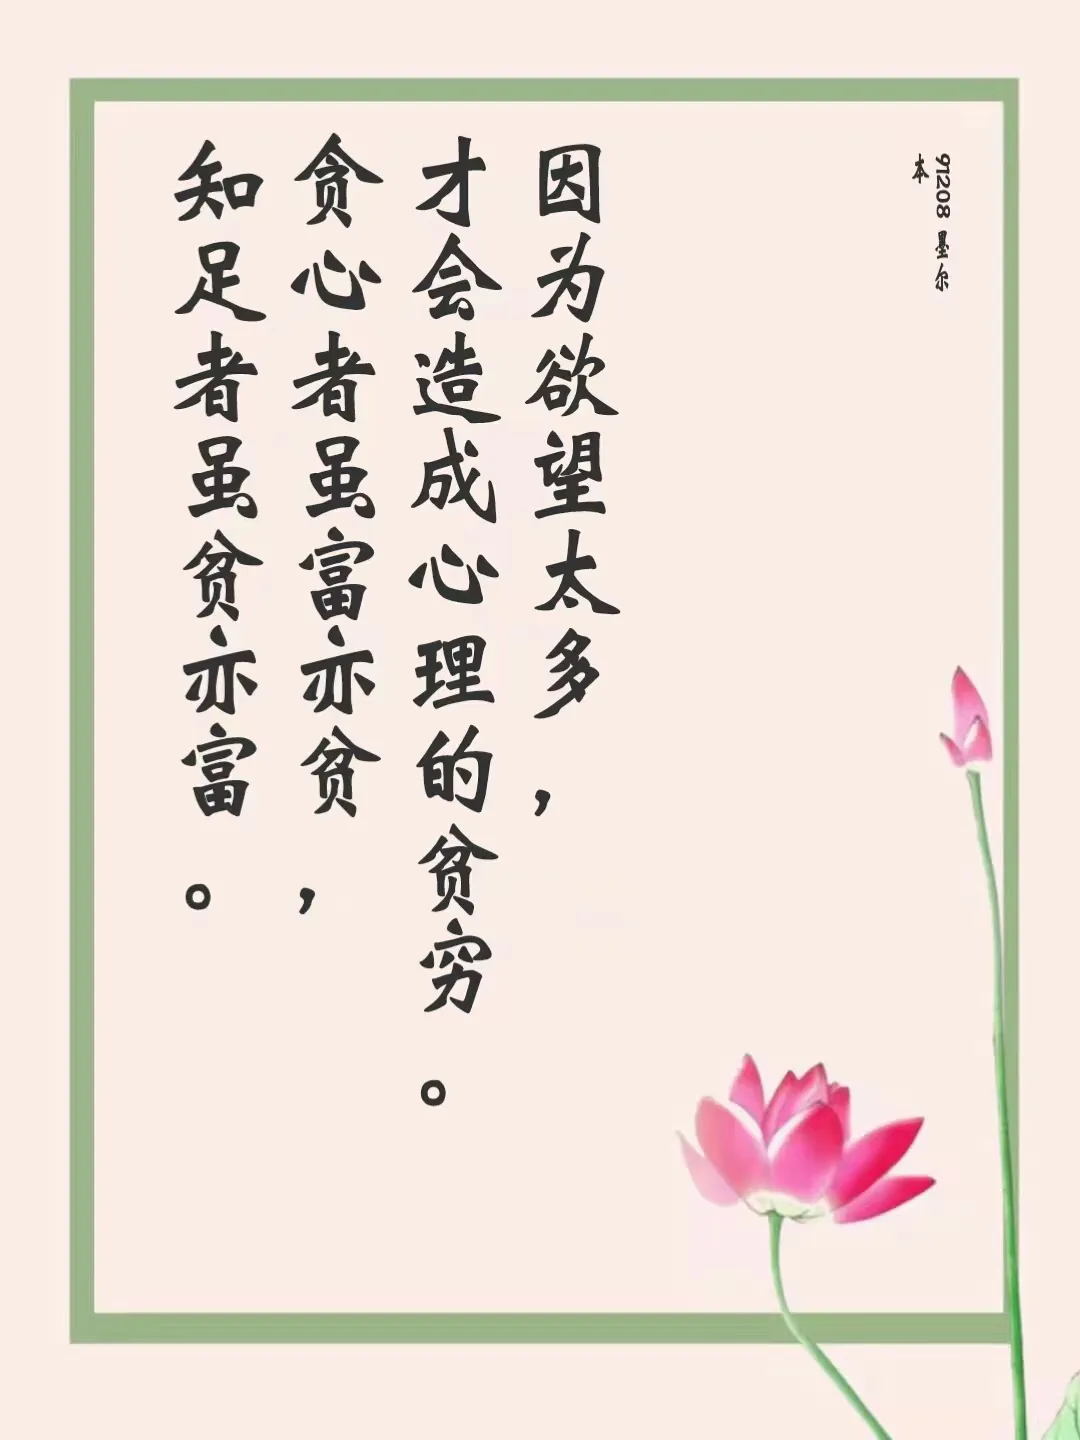 91208 墨尔
本
因为欲望太多，
才会造成心理的贫穷。
贪心者虽富亦贫，
知足者虽贫亦富。